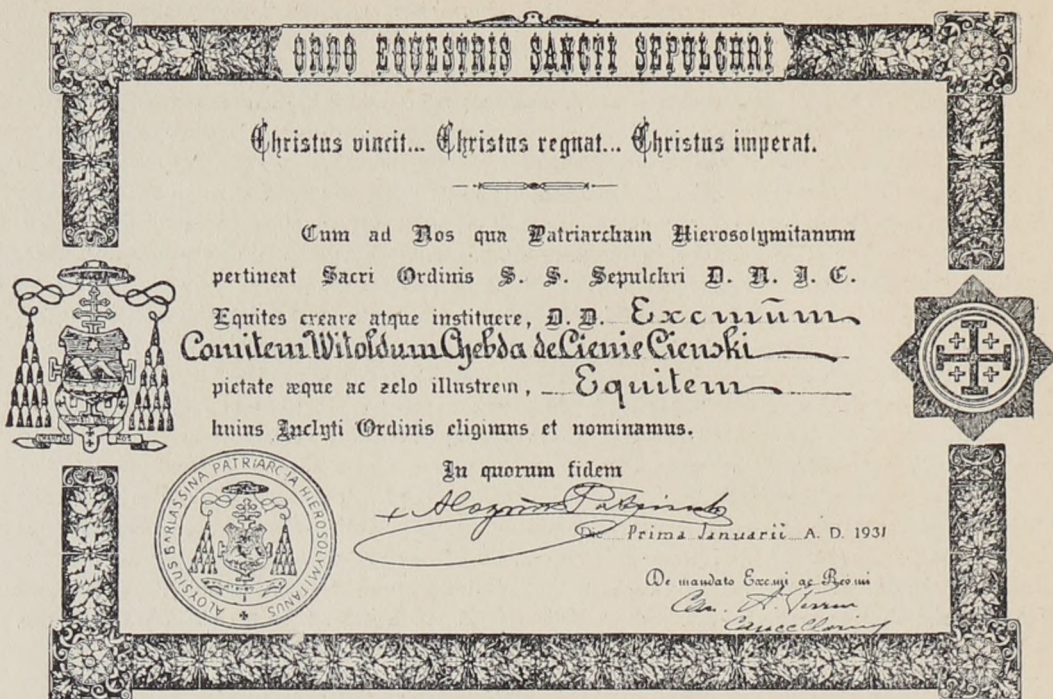 ORDO EQUESTRIS SANCTI SEPULCHRI
Christus vincit... Christus regnat... Christus imperat.
Cum ad Nos qua Patriarcham Hierosolymitanum
pertineat Sacri Ordinis S. S. Sepulchri D. N. J. C.
Equites creare atque instituere, D. D. Excmūm
Comitem Witoldum Chebda de Cienie Cienski
pietate æque ac zelo illustrem, Equitem
huius Inclyti Ordinis eligimus et nominamus.
In quorum fidem
ALOYSIUS BARLASSINA PATRIARCHA HIEROSOLYMITANUS
Die Prima Januarii A. D. 1931
De mandato Excmi ac Revmi
Can. A.
Cancellarius